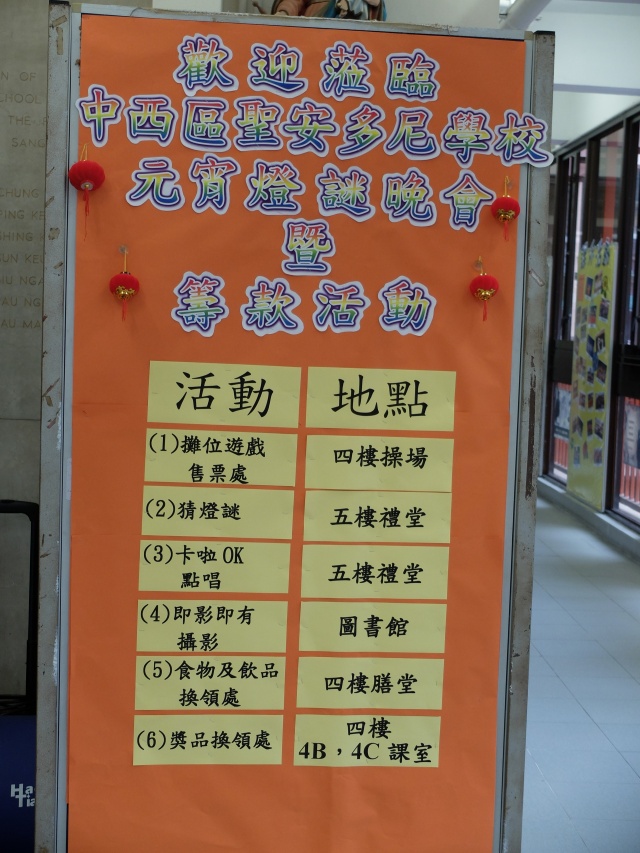 歡迎蒞臨
中西區聖安多尼學校
元宵燈謎晚會
暨
籌款活動
活動 地點
(1)攤位遊戲
售票處
四樓操場
(2)猜燈謎
五樓禮堂
(3)卡啦OK
點唱
五樓禮堂
(4)即影即有
攝影
圖書館
(5)食物及飲品
換領處
四樓膳堂
(6)獎品換領處
四樓
4B，4C 課室